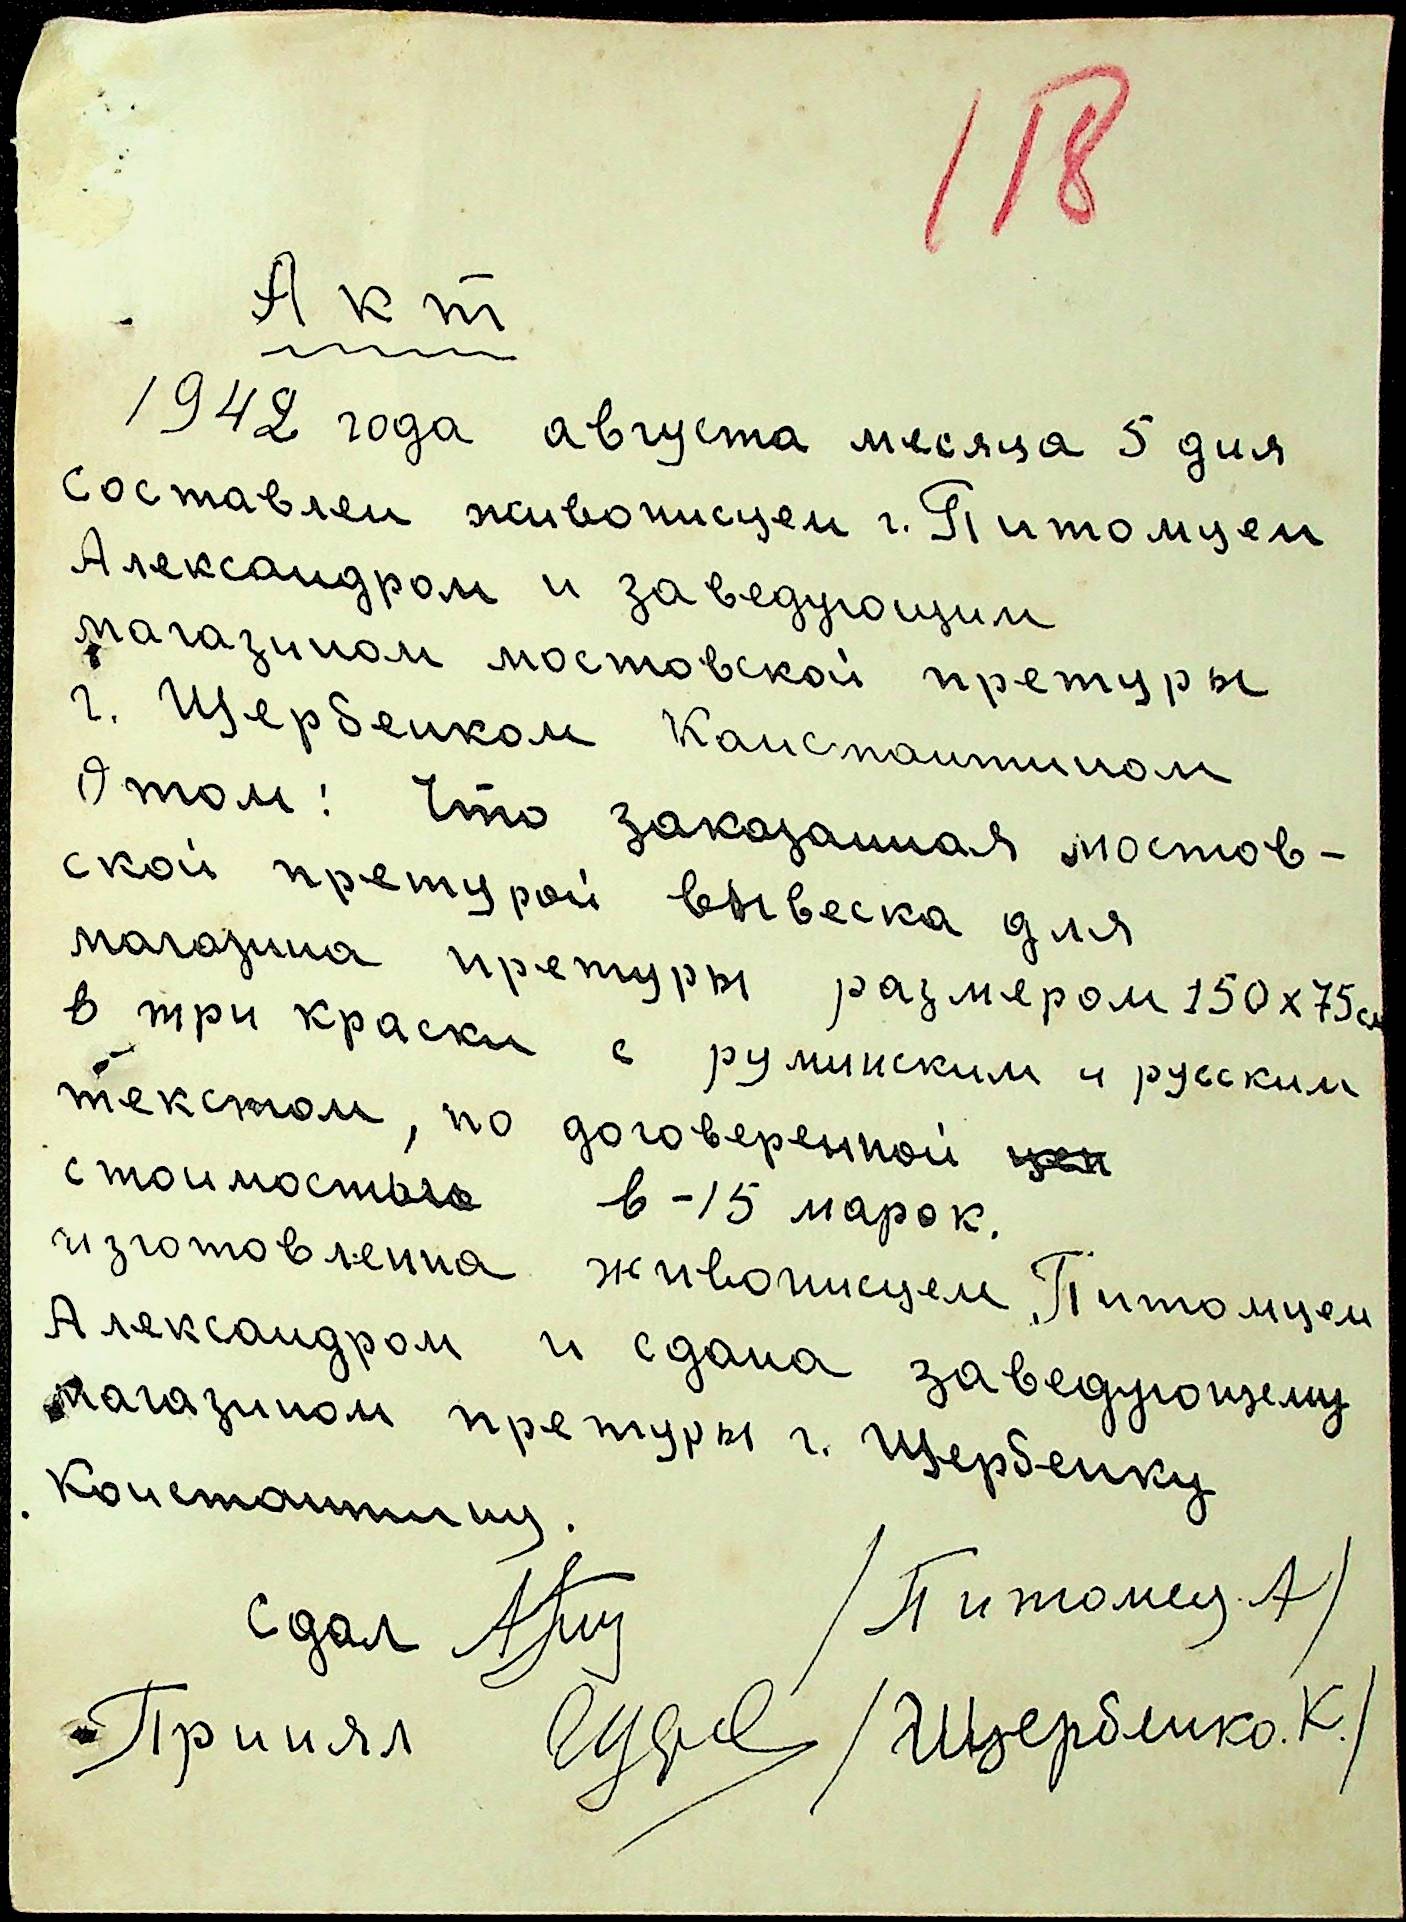 118
Акт
1942 года августа месяца 5 дня
составлен живописцем г. Питомцем
Александром и заведующим
магазином мостовской претуры
г. Щербенком Канстантином
О том: Что заказанная мостов-
ской претурой вывеска для
магазина претуры размером 150х75см
в три краски с румынским и русским
текстом, по договоренной цен
стоимостью в -15 марок.
изготовленна живописцем Питомцем
Александром и сдана заведующему
магазином претуры г. Щербенку
Константину.
Сдал /Питомец. А/
Принял /Щербенко. К./